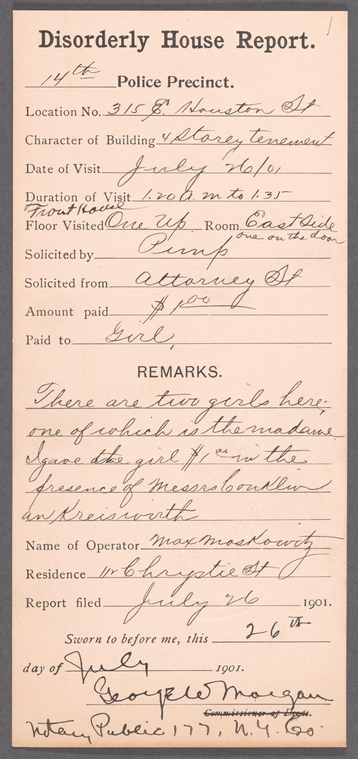 Disorderly House Report.
14th Police Precinct.
Location No. 315 E. Houston St
Character of Building 4 Storey tenement
Date of Visit July 26/01
Duration of Visit 1.20 a.m to 1.35
Front House
Floor Visited One Up Room East Side
one on the door
Solicited by Pimp
Solicited from Attorney St
Amount paid $1.00
Paid to Girl,
REMARKS.
There are two girls here;
one of which is the madame.
I gave the girl $1.00 in the
presence of Messrs Conklin
an Kreiswirth
Name of Operator Max Moskowitz
Residence Chrystie St
Report filed July 26 1901.
Sworn to before me, this 26th
day of July 1901.
George W Morgan
Commissioner of Deeds.
Notary Public 177, N.Y. Co.